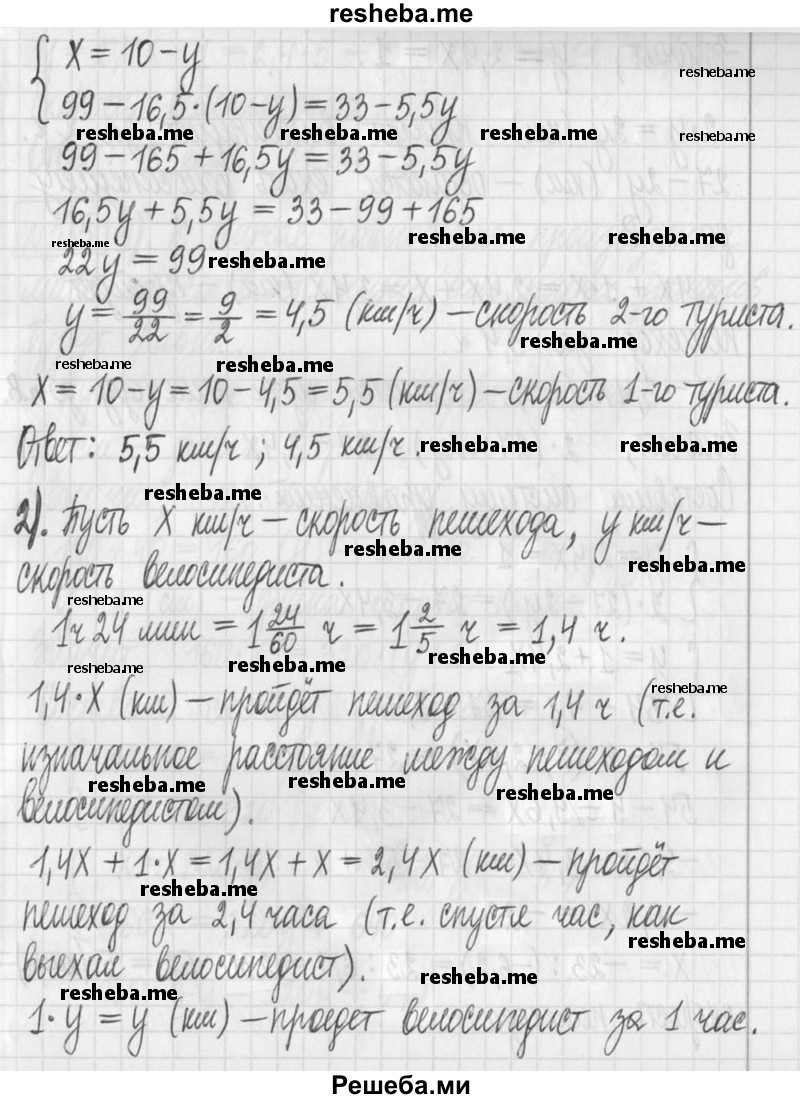 resheba.me
{ x = 10 − y
resheba.me
99 − 16,5·(10−y) = 33 − 5,5y
resheba.me resheba.me resheba.me resheba.me
99 − 165 + 16,5y = 33 − 5,5y
16,5y + 5,5y = 33 − 99 + 165
resheba.me resheba.me resheba.me
22y = 99 resheba.me
y = 99/22 = 9/2 = 4,5 (км/ч) − скорость 2-го туриста.
resheba.me
resheba.me
x = 10 − y = 10 − 4,5 = 5,5 (км/ч) − скорость 1-го туриста.
Ответ: 5,5 км/ч ; 4,5 км/ч. resheba.me resheba.me
resheba.me
2). Пусть x км/ч − скорость пешехода, y км/ч −
resheba.me
resheba.me
скорость велосипедиста.
resheba.me
1ч 24 мин = 1 24/60 ч = 1 2/5 ч = 1,4 ч.
resheba.me resheba.me resheba.me
resheba.me
1,4·x (км) − пройдёт пешеход за 1,4 ч (т.е.
изначальное расстояние между пешеходом и
resheba.me resheba.me resheba.me
велосипедистом).
1,4x + 1·x = 1,4x + x = 2,4x (км) − пройдёт
resheba.me
пешеход за 2,4 часа (т.е. спустя час, как
resheba.me
выехал велосипедист).
resheba.me
resheba.me
1·y = y (км) − проедет велосипедист за 1 час.
Решеба.ми